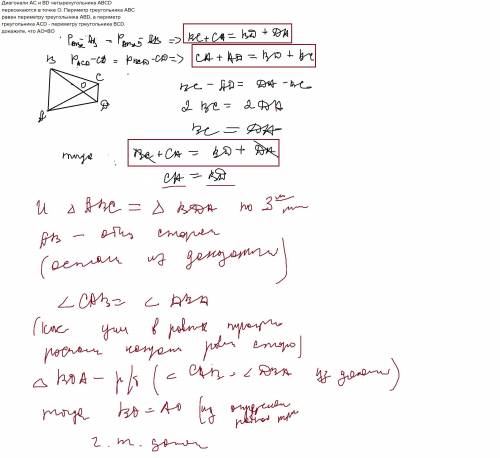 Диагонали AC и BD четырехугольника ABCD
пересекаются в точке O. Периметр треугольника ABC
равен периметру треугольника ABD, а периметр
треугольника ACD - периметру треугольника BCD.
докажите, что AO=BO
P_ABC - AB = P_ABD - AB => BC + CA = BD + DA
P_ACD - CD = P_BCD - CD => CA + AD = BD + BC
B C O A D
BC - AD = DA - BC
2 BC = 2 DA
BC = DA
тогда BC + CA = BD + DA
CA = BD
и △ ABC = △ BDA по 3
AB - общая сторона
(остальн из доказанного)
∠CAB = ∠ DBA
(как углы в равных
напротив равных сторон)
△ BOA - р/б (∠ CAB = ∠DBA из доказан)
тогда BO = AO (из определения
ч. т. доказ